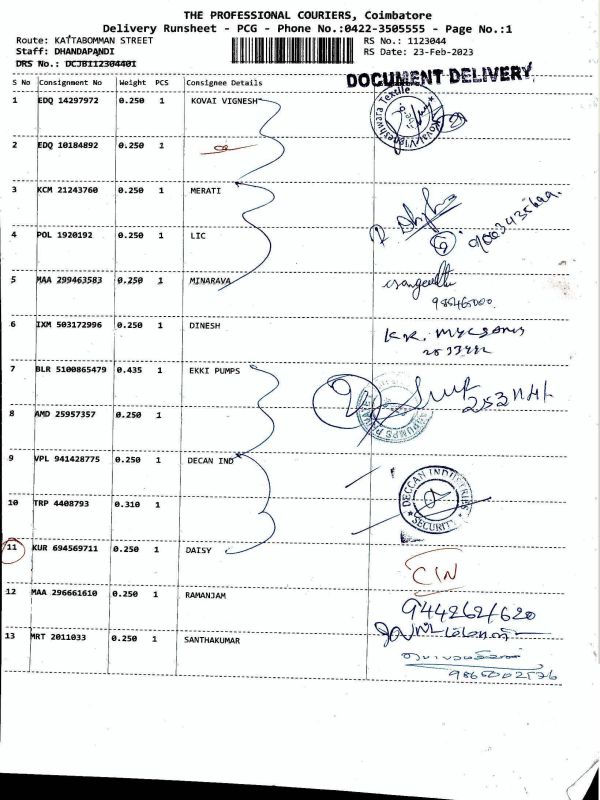 THE PROFESSIONAL COURIERS, Coimbatore
Delivery Runsheet - PCG - Phone No.:0422-3505555 - Page No.:1
Route: KATTABOMMAN STREET
RS No.: 1123044
Staff: DHANDAPANDI
RS Date: 23-Feb-2023
DRS No.: DCJB1123044OI
DOCUMENT DELIVERY
S No Consignment No Weight PCS Consignee Details
1 EDQ 14297972 0.250 1 KOVAI VIGNESH
Kovai Vigneshwara Textile
2 EDQ 10184892 0.250 1
3 KCM 21243760 0.250 1 MERATI
4 POL 1920192 0.250 1 LIC
5 MAA 299463583 0.250 1 MINARAVA
6 IXM 503172996 0.250 1 DINESH
7 BLR 5100865479 0.435 1 EKKI PUMPS
8 AMD 25957357 0.250 1
9 VPL 941428775 0.250 1 DECAN IND
DECCAN INDUSTRIES
SECURITY
10 TRP 4408793 0.310 1
11 KUR 694569711 0.250 1 DAISY
CIN
12 MAA 296661610 0.250 1 RAMANJAM
13 MRT 2011033 0.250 1 SANTHAKUMAR